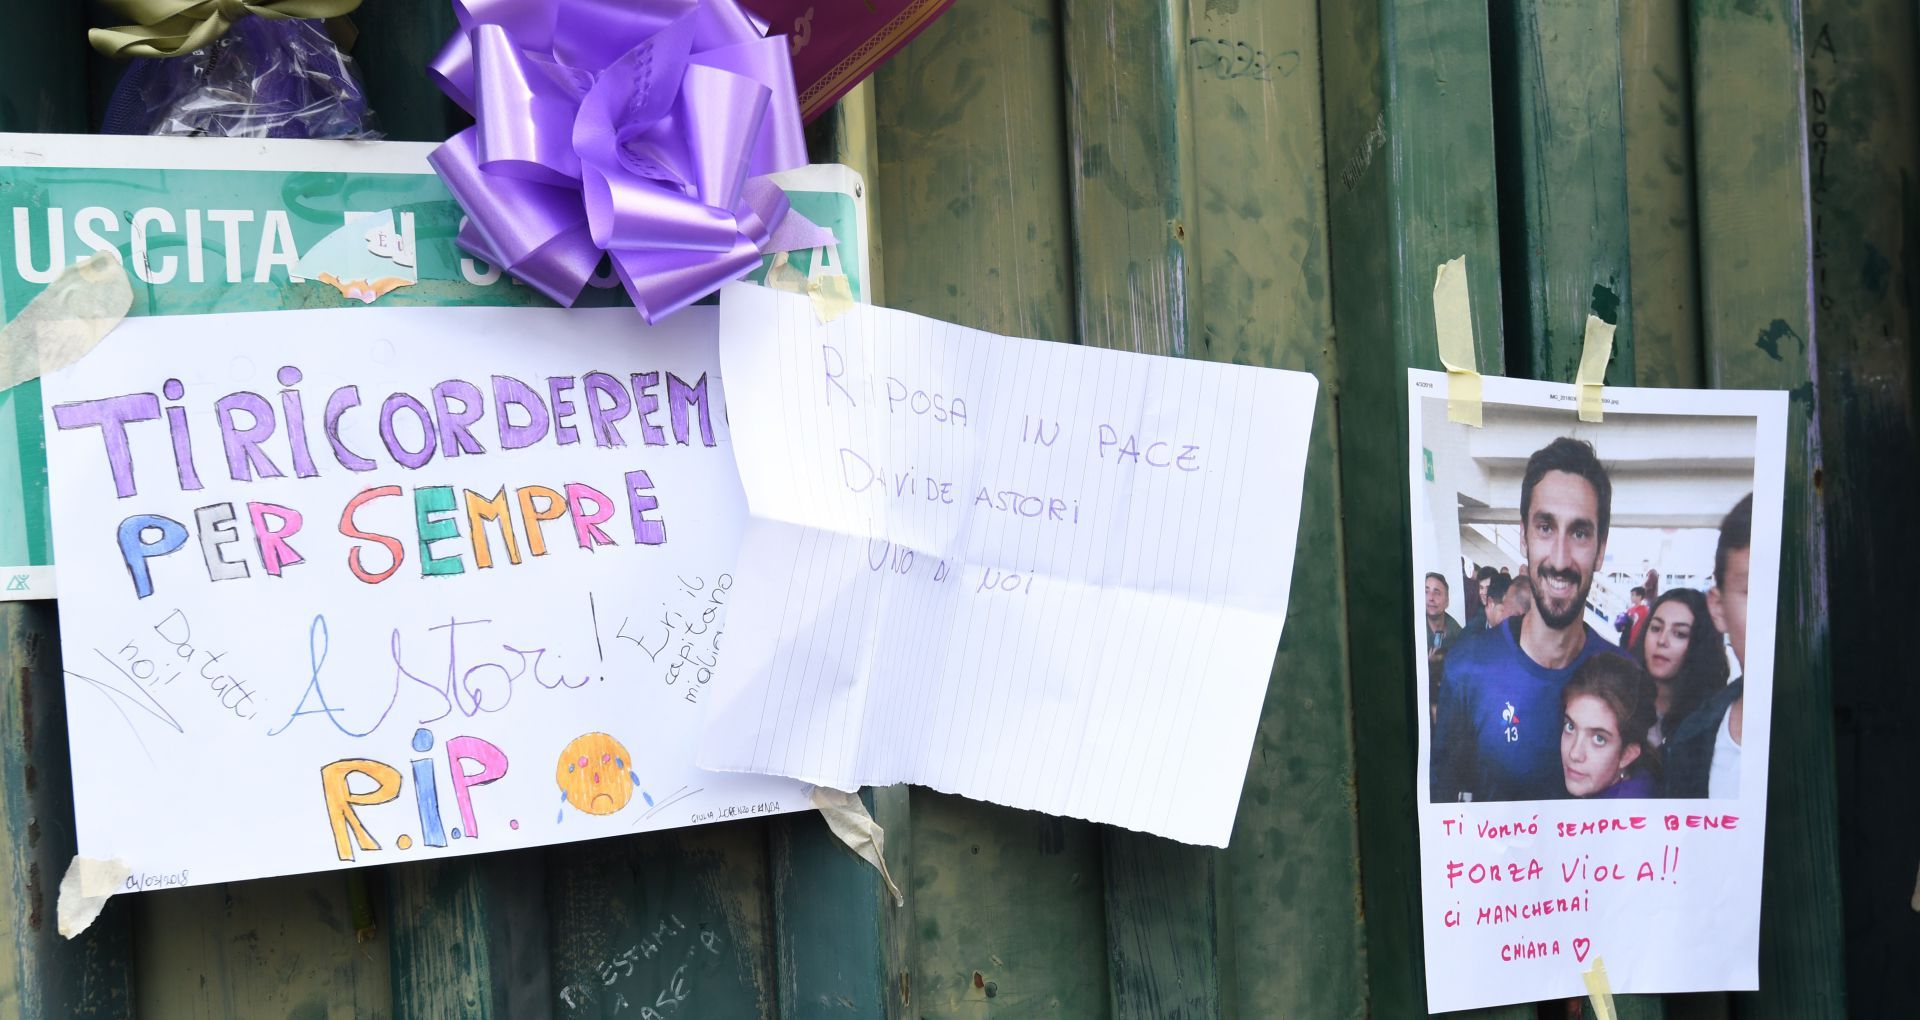 USCITA
TI RICORDEREM
PER SEMPRE
Da tutti
noi!
Astori!
Eri il
capitano
R.i.P.
GIULIA, LORENZO E
04/03/2018
RIPOSA IN PACE
DAViDE ASTORi
UNO Di NOi
4/3/2018
13
Ti VORRÓ SEMPRE BENE
FORZA ViOLA!!
Ci MANCHERAI
CHIARA ♡